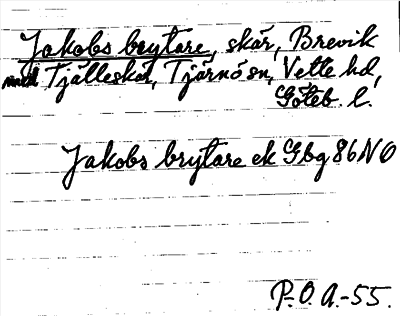 Jakobs brytare, skär, Brevik
med Tjälleskär, Tjärnö sn, Vette hd,
Göteb. l.
Jakobs brytare ek Gbg 86 NO
P.O.A.-55.